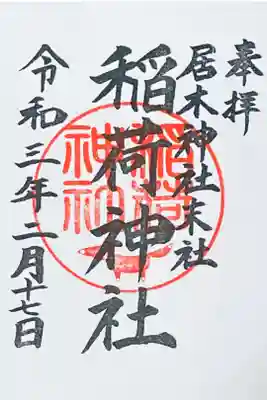 奉拝
居木神社末社
稲荷神社
稲荷神社
令和三年二月十七日